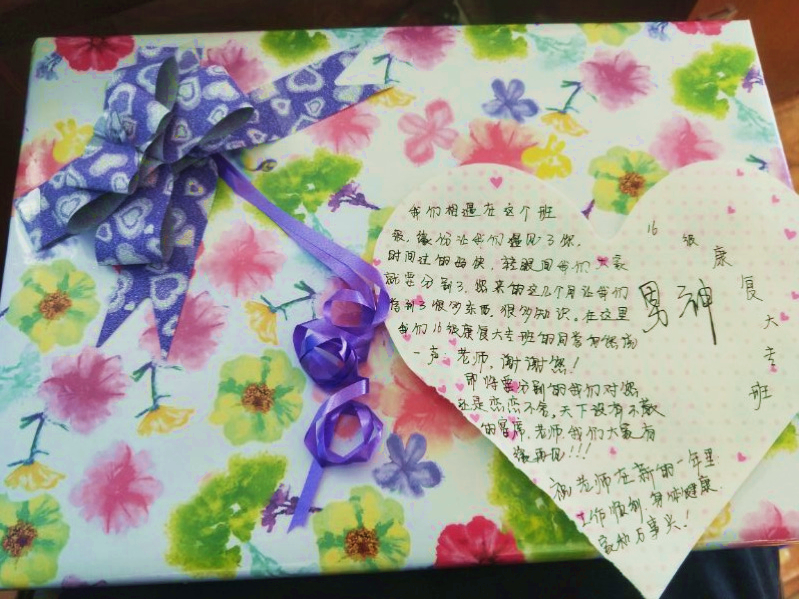 我们相遇在这个班
级，缘份让我们遇见了您，
时间过的真快，转眼间我们大家
就要分别了，您来的这几个月让我们
学到了很多东西，很多知识。在这里
我们16级康复大专班的同学对您说
一声：老师，谢谢您！
即将要分别的我们对您
还是恋恋不舍，天下没有不散
的宴席，老师我们大家有
缘再见!!!
祝老师在新的一年里
工作顺利，身体健康，
家和万事兴！
男神
16级康复大专班